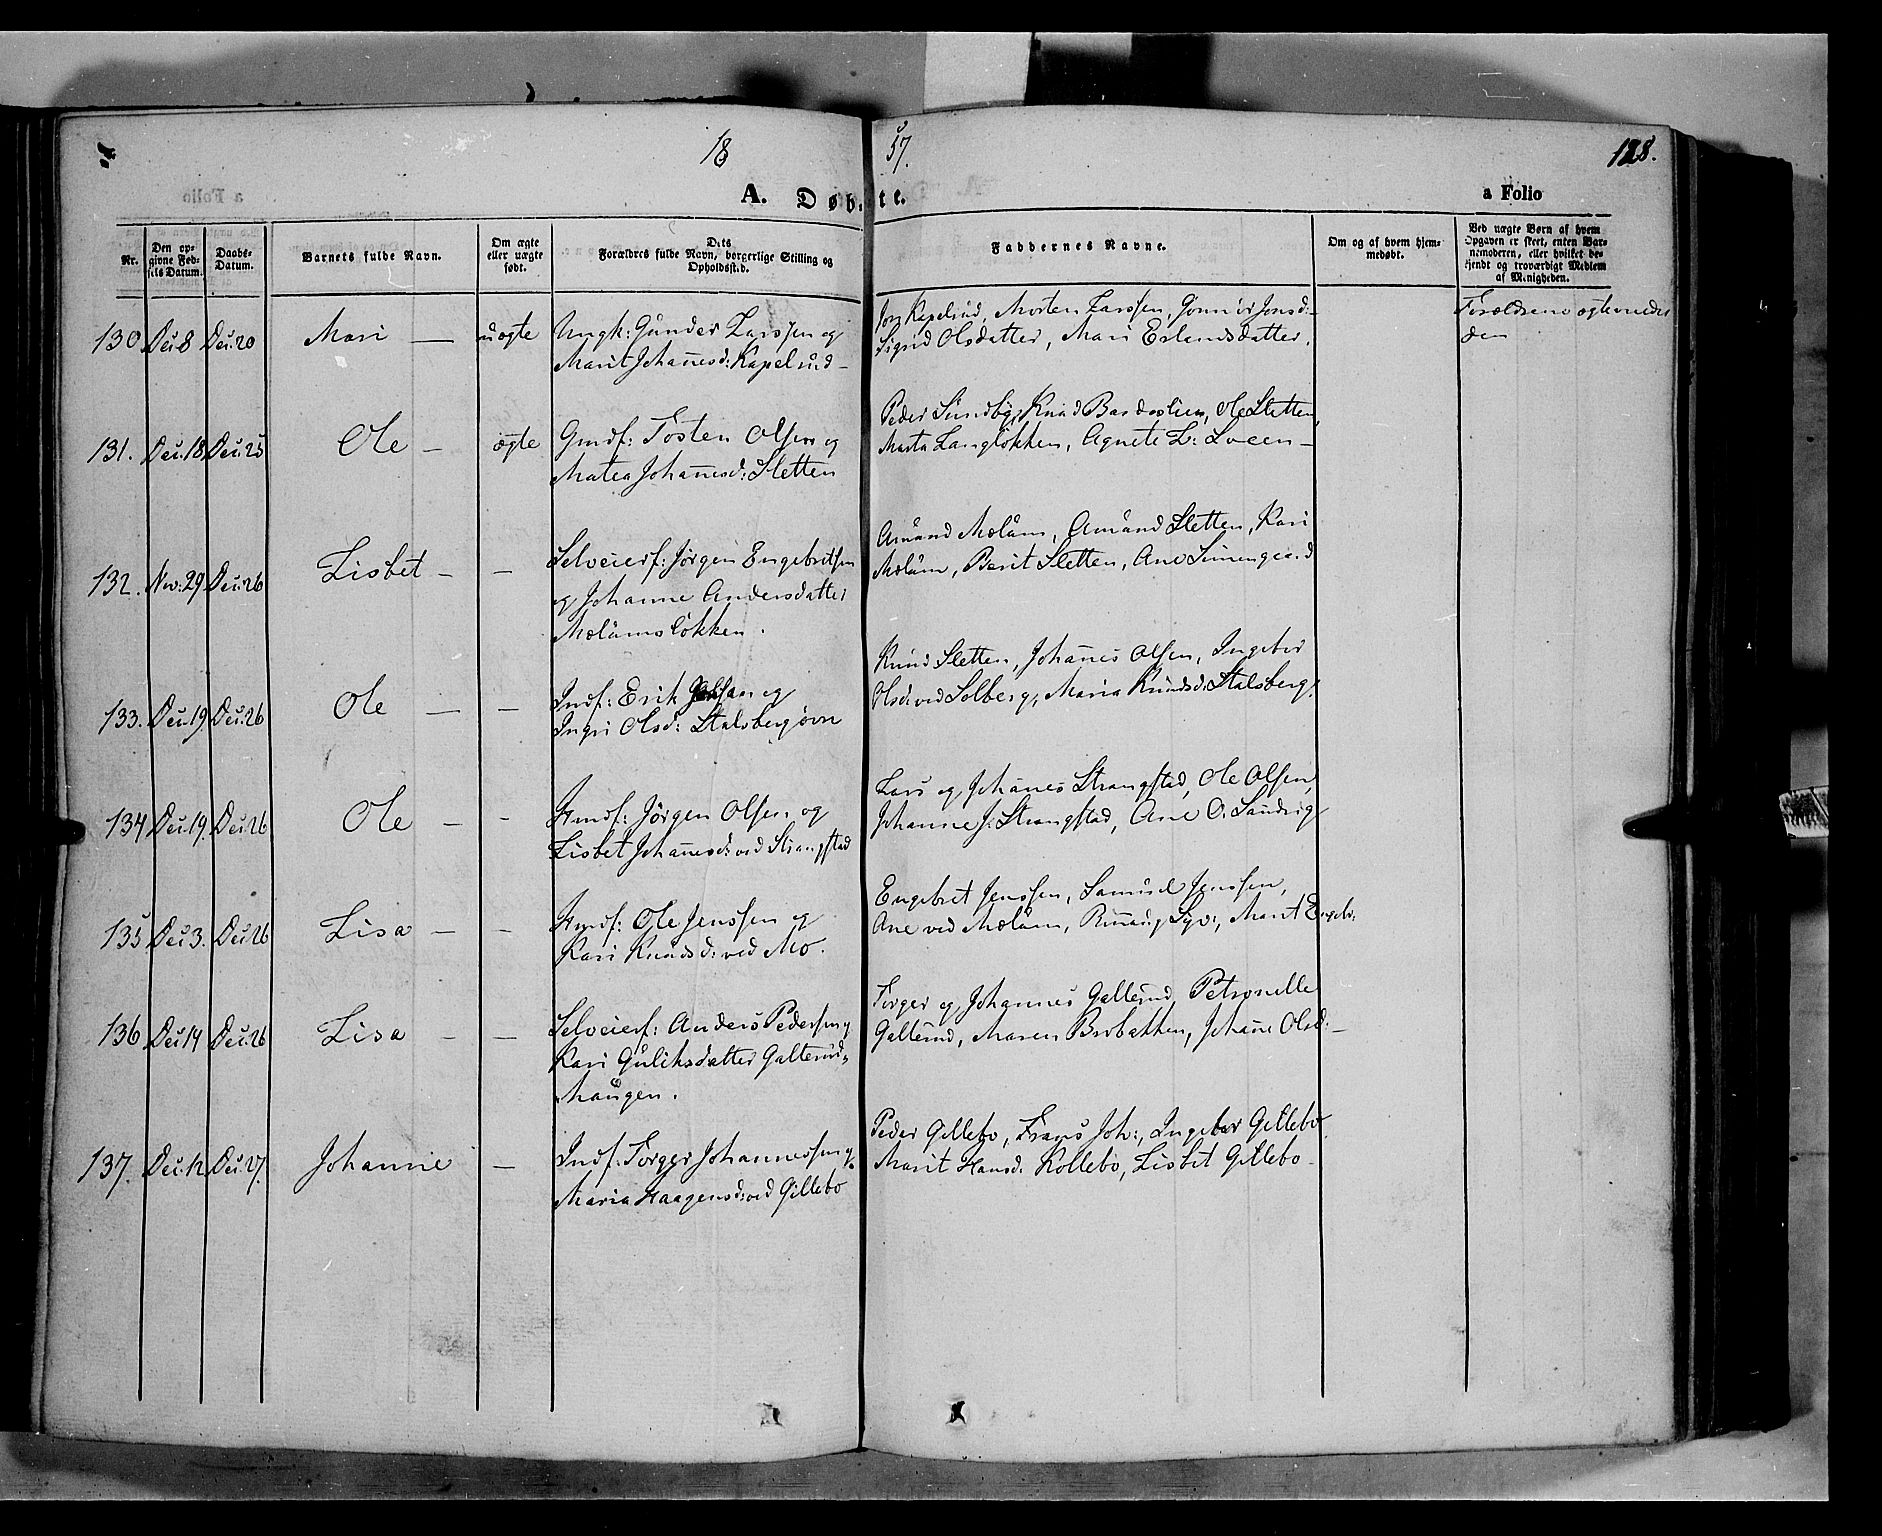 18
57.
128.
A. Døbte.
a Folio
Nr.
Den op-
givne Fød-
sels Datum.
Daabs-
Datum.
Barnets fulde Navn.
Om ægte
eller uægte
født.
Dets
Forældres fulde Navn, borgerlige Stilling og
Opholdssted.
Faddernes Navne.
Om og af hvem hjem-
medøbt.
Ved uægte Børn af hvem
Opgaven er skeet, enten Bar-
nemoderen, eller hvilket be-
kjendt og troværdigt Medlem
af Menigheden.
130 Dec: 8 Dec: 20 Mari — uægte Ungk: Gunder Larssen og
Marit Johannesd: Kapelrud —
Morten Larssen, Jonsd:
Sigrid Olsdatter, Mari Erlandsdatter.
Forældrene
131. Dec: 18 Dec: 25 Ole — ægte Gmdf: Tosten Olsen og
Matea Johannesd: Sletten
Peder Sundby, Knud Ole Sletten,
Marta Langløkken, Agnete L: Loeen —
132. Nov: 29 Dec: 26 Lisbet — — Selveierf: Jørgen Engebretsen
og Johanne Andersdatter
Mælumsløkken.
Amund Mælum, Amund Sletten, Kari
Mælum, Berit Sletten, Ane Simengaard
133. Dec: 19. Dec: 26 Ole — — Indf: Erik og
Ingri Olsd: Stalsberg øvre
Knud Sletten, Johanes Olsen, Ingebor
Olsd: ved Solberg, Maria Knudsd: Stalsberg.
134 Dec: 19. Dec: 26 Ole — — Hmdf: Jørgen Olsen og
Lisbet Johannesd: ved Strangstad
Lars og Johanes Strangstad, Ole Olsen,
Johanne J: Strangstad, Ane O. Sandvig
135 Dec: 3. Dec: 26 Lisa — — Hmdf: Ole Jenssen og
Kari Knudsd: ved Mo.
Engebret Jenssen, Samuel Jenssen,
Ane ved Mælum, Marit Engeb:
136 Dec: 14 Dec: 26 Lisa — — Selveierf: Anders Pedersen og
Kari Guliksdatter Galterud-
haugen.
Torger og Johannes Galterud, Petronelle
Galterud, Maren Brobakken, Johane Olsd: —
137. Dec: 12 Dec: 27. Johanne — Indf: Torger Johannessen og
Maria Haagensd: ved Gillebo
Peder Gillebo, Frans Joh:, Ingebor Gillebo
Marit Hansd: Kollebo, Lisbet Gillebo